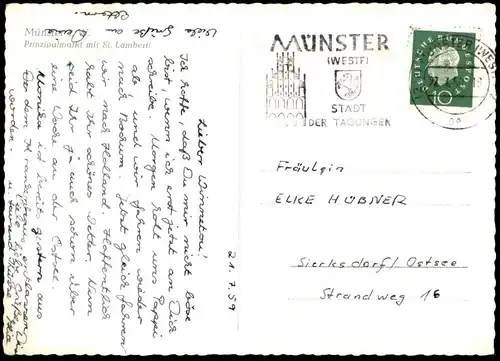 Münster i. W.
Prinzipalmarkt mit St. Lamberti
Viele Grüße an
Eltern!
21.7.59
Lieber Winnetou!
Ich hoffe, daß Du mir nicht böse
bist, wenn ich erst jetzt an Dich
schreibe. Morgen holt uns Pappi
ab, und wir fahren wieder
nach Bochum. Jetzt gleich fahren
wir nach Holland. Hoffentlich
habt Ihr schönes Wetter. Nun
seid Ihr ja auch schon über
eine Woche an der Ostsee.
Monika ist bereits gestern aus
dem Krankenhaus entlassen
worden.
Viele liebe Grüße
MÜNSTER
(WESTF)
STADT
DER TAGUNGEN
DEUTSCHE BUNDESPOST
10
MÜNSTER (WESTF)
Fräulein
ELKE HÜBNER
Sierksdorf/Ostsee
Strandweg 16